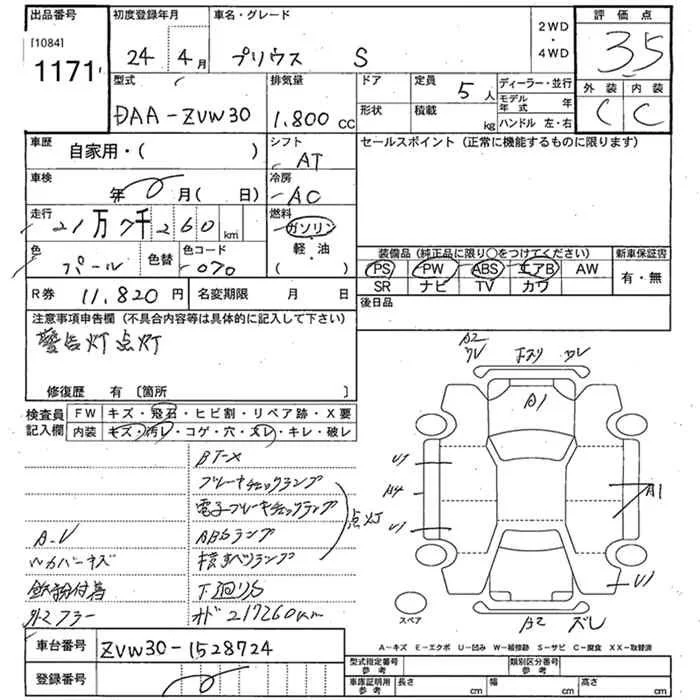 出品番号 初度登録年月 車名・グレード 2WD・4WD 評価点
[1084]
1171 24年 4月 プリウス S 3.5
型式 排気量 ドア 定員 5人 ディーラー・並行 外装 内装
モデル年式 年
DAA-ZVW30 1.800cc 形状 積載 kg ハンドル 左・右 C C
車歴 自家用・( ) シフト AT セールスポイント(正常に機能するものに限ります)
車検 年 月( 日) 冷房 AC
走行 21万7千260km 燃料 ガソリン・軽・油 ( )
色 パール 色替 色コード 070 装備品(純正品に限り○をつけてください) 新車保証書
PS PW ABS エアB AW 有・無
SR ナビ TV カワ
R券 11,820円 名変期限 月 日 後日品
注意事項申告欄(不具合内容等は具体的に記入して下さい)
警告灯点灯
修復歴 有〔箇所 〕
検査員記入欄 FW キズ・飛石・ヒビ割・リペア跡・X要
内装 キズ・汚レ・コゲ・穴・スレ・キレ・破レ
BT-X
ブレーキチェックランプ
電子ブレーキチェックランプ
点灯
A-V ABSランプ
横すべりランプ
鉄粉付着 下廻りS
外マフラー オド217260km
A2
ワレ
A1
U1
A4
U1
A1
U1
A2 ズレ
スペア
A-キズ E-エクボ U-凹み W-補修跡 S-サビ C-腐食 XX-取替済
車台番号 ZVW30-1528724
型式指定番号 参考 類別区分番号 参考
登録番号
車庫証明用 参考 長さ cm 幅 cm 高さ cm